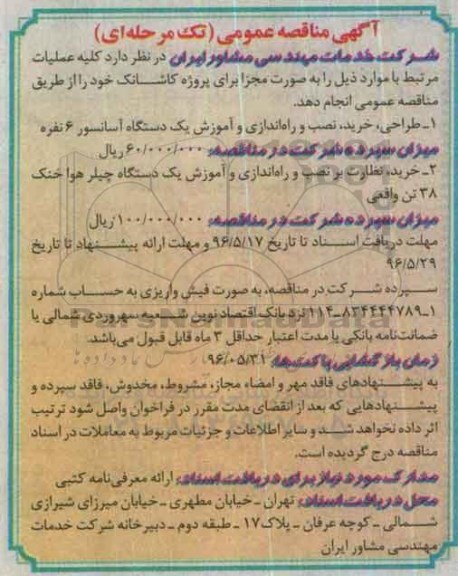 آگهی مناقصه عمومی (تک مرحله‌ای)
شرکت خدمات مهندسی مشاور ایران در نظر دارد کلیه عملیات
مرتبط با موارد ذیل را به صورت مجزا برای پروژه کاشانک خود را از طریق
مناقصه عمومی انجام دهد.
۱ـ طراحی، خرید، نصب و راه‌اندازی و آموزش یک دستگاه آسانسور ۶ نفره
میزان سپرده شرکت در مناقصه: ۶۰/۰۰۰/۰۰۰ ریال
۲ـ خرید، نظارت بر نصب و راه‌اندازی و آموزش یک دستگاه چیلر هوا خنک
۳۸ تن واقعی
میزان سپرده شرکت در مناقصه: ۱۰۰/۰۰۰/۰۰۰ ریال
مهلت دریافت اسناد تا تاریخ ۹۶/۵/۱۷ و مهلت ارائه پیشنهاد تا تاریخ
۹۶/۵/۲۹
سپرده شرکت در مناقصه، به صورت فیش واریزی به حساب شماره
۱ـ۸۳۴۴۴۴۷۸۹ـ۱۱۴ نزد بانک اقتصاد نوین شعبه سهروردی شمالی یا
ضمانت‌نامه بانکی با مدت اعتبار حداقل ۳ ماه قابل قبول می‌باشد.
زمان بازگشایی پاکت‌ها: ۹۶/۰۵/۳۱
به پیشنهادهای فاقد مهر و امضاء مجاز، مشروط، مخدوش، فاقد سپرده و
پیشنهادهایی که بعد از انقضای مدت مقرر در فراخوان واصل شود ترتیب
اثر داده نخواهد شد و سایر اطلاعات و جزئیات مربوط به معاملات در اسناد
مناقصه درج گردیده است.
مدارک مورد نیاز برای دریافت اسناد: ارائه معرفی‌نامه کتبی
محل دریافت اسناد: تهران ـ خیابان مطهری ـ خیابان میرزای شیرازی
شمالی ـ کوچه عرفان ـ پلاک ۱۷ ـ طبقه دوم ـ دبیرخانه شرکت خدمات
مهندسی مشاور ایران